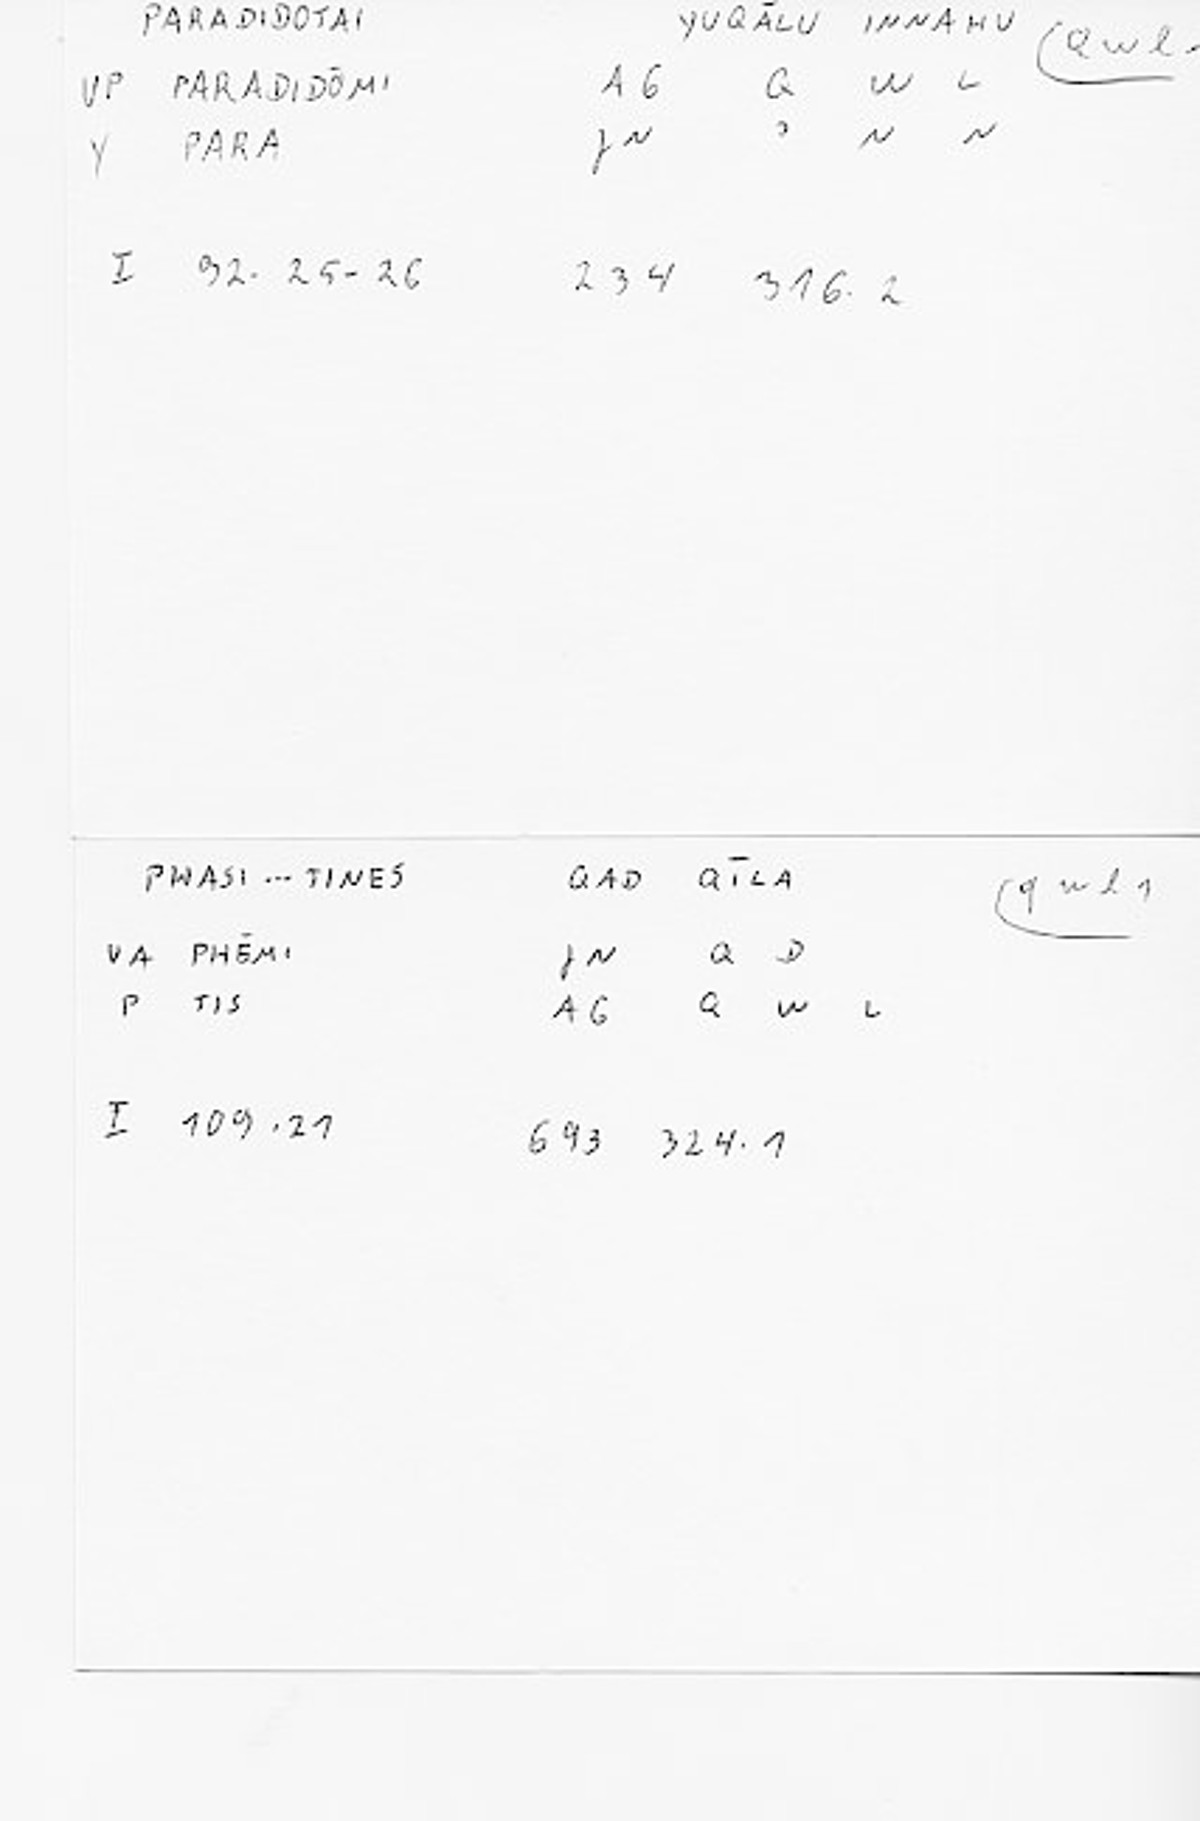 PARADIDOTAI YUQĀLU INNAHU (qwl
VP PARADIDŌMI AG Q W L
Y PARA JN ʾ N N
I 92. 25-26 234 316. 2
PHASI ... TINES QAD QĪLA (qwl1
VA PHĒMI JN Q D
P TIS AG Q W L
I 109.21 693 324.1